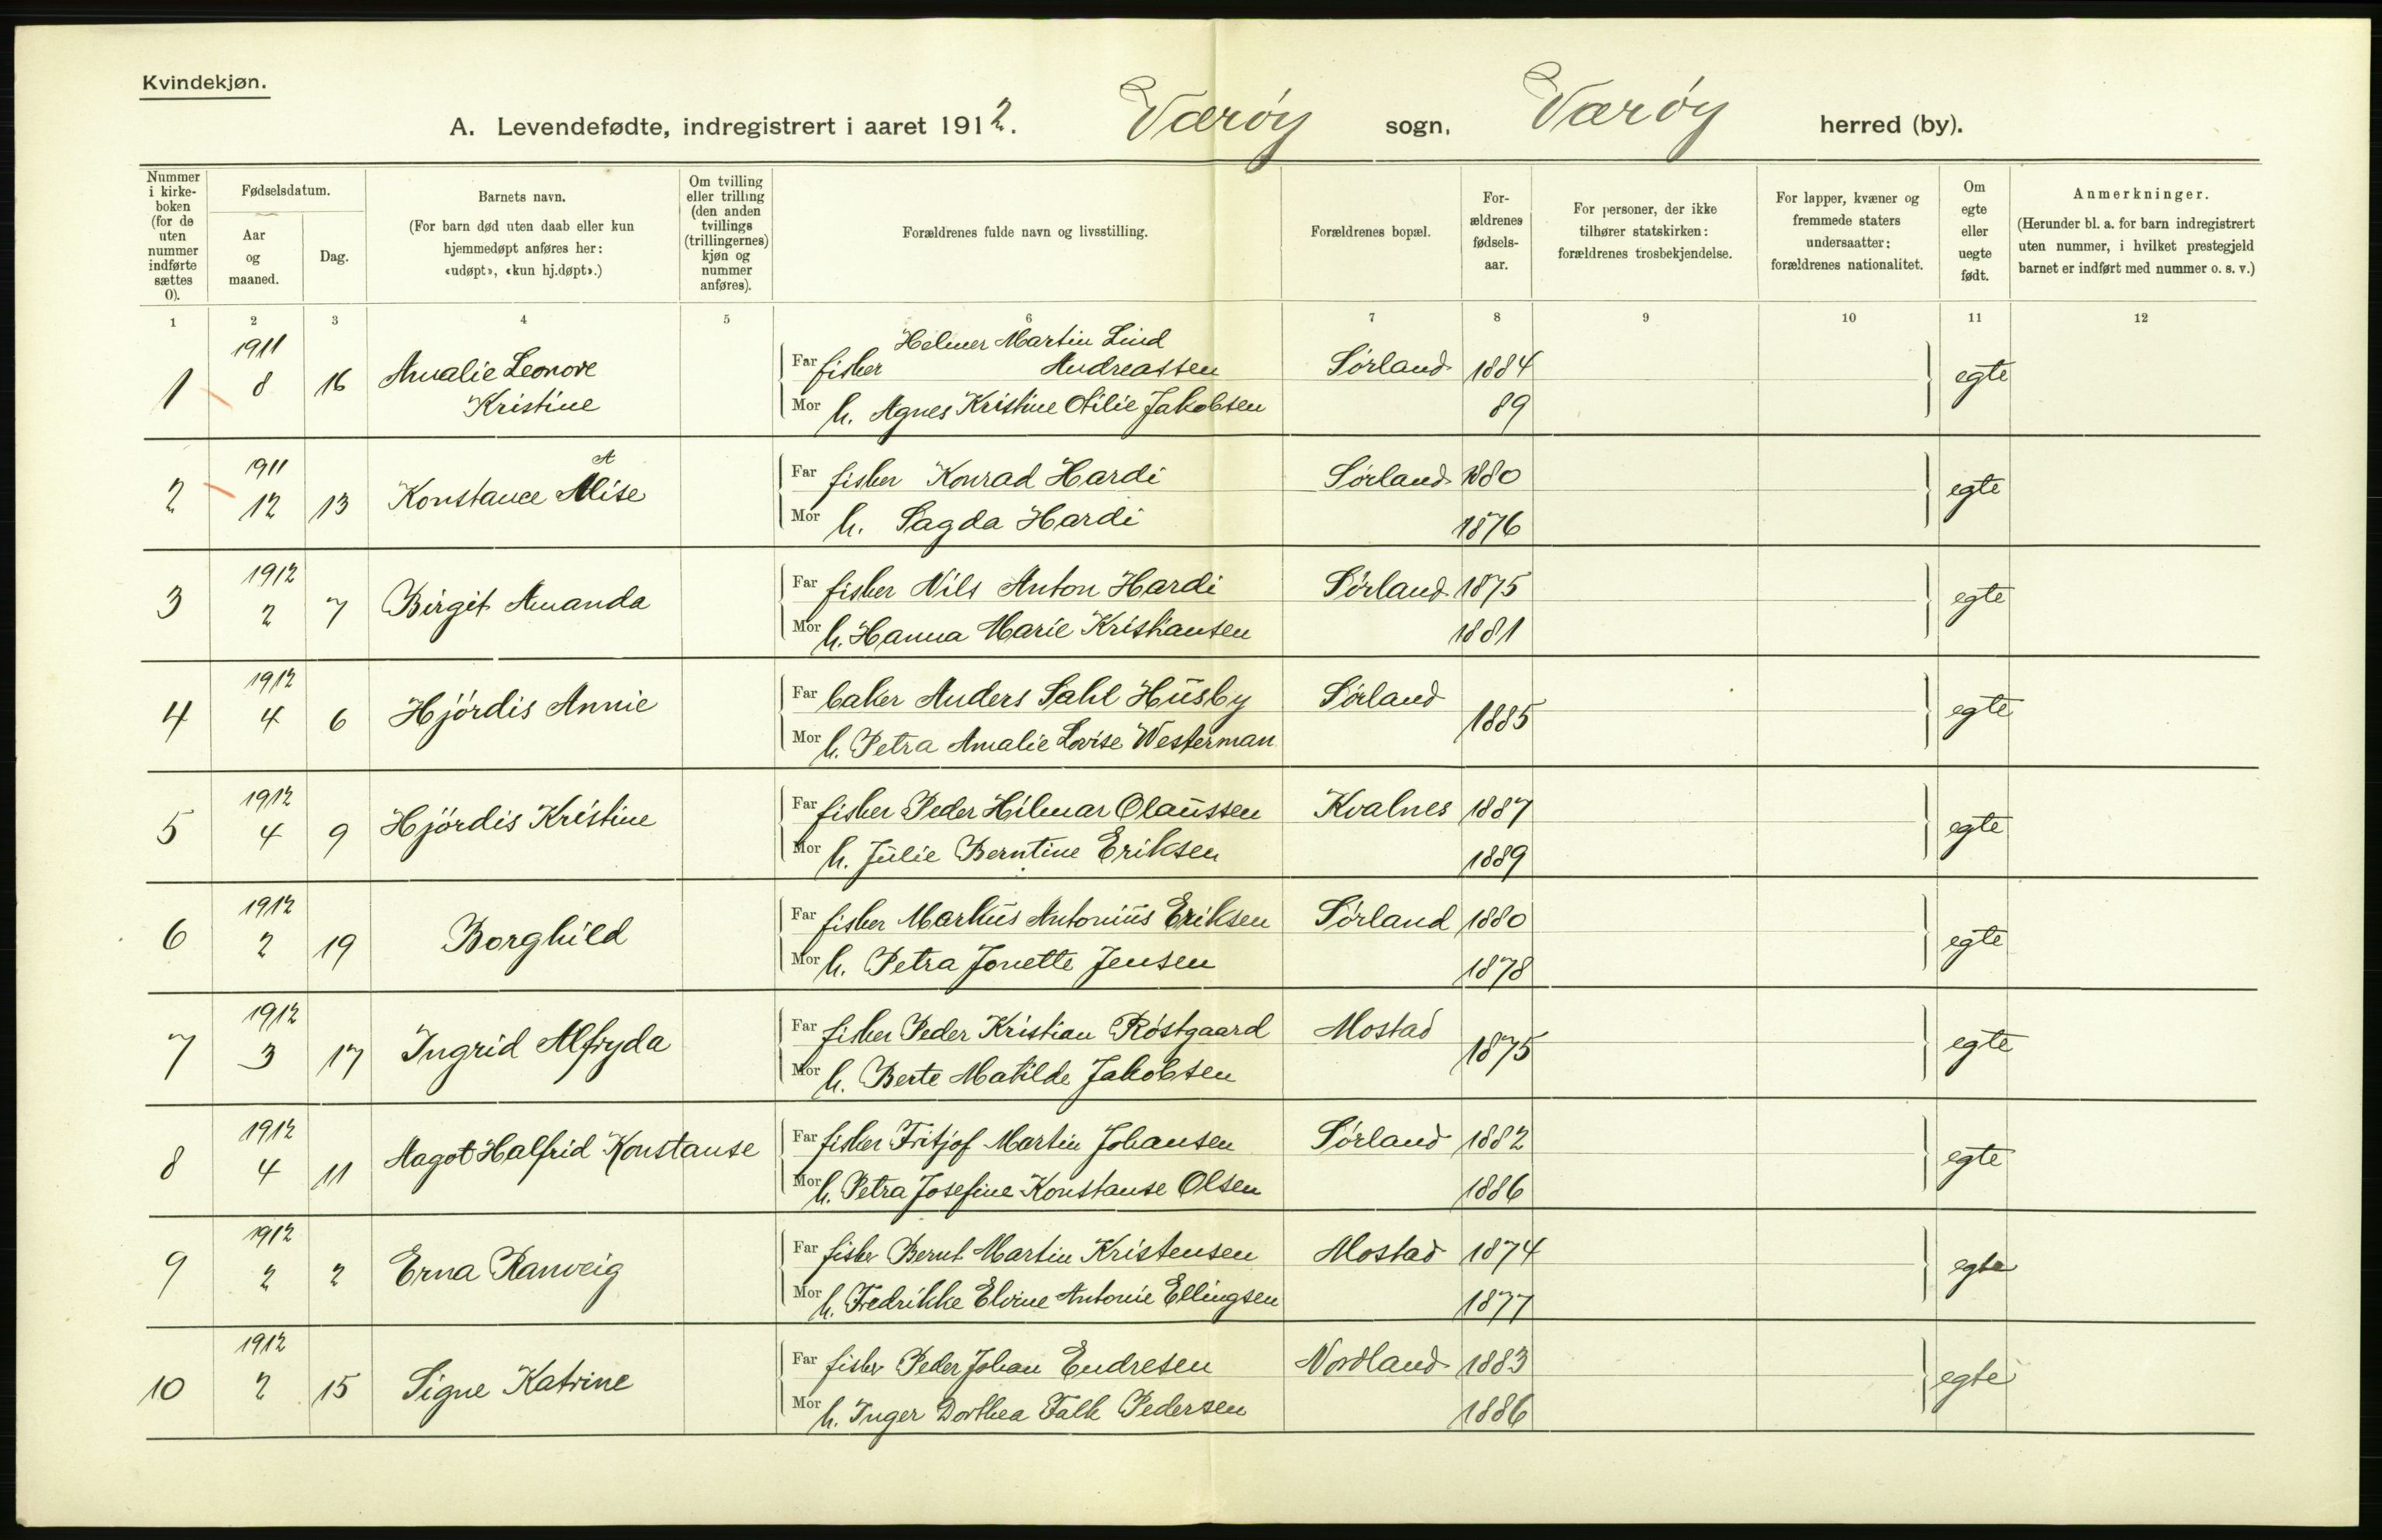 Kvindekjøn.
A. Levendefødte, indregistrert i aaret 1912. Værøy sogn, Værøy herred (by).
Nummer i kirke-boken (for de uten nummer indførte sættes 0).
Fødselsdatum.
Aar og maaned.
Dag.
Barnets navn.
(For barn død uten daab eller kun hjemmedøpt anføres her: «udøpt», «kun hj.døpt».)
Om tvilling eller trilling (den anden tvillings (trillingernes) kjøn og nummer anføres).
Forældrenes fulde navn og livsstilling.
Forældrenes bopæl.
For-ældrenes fødsels-aar.
For personer, der ikke tilhører statskirken: forældrenes trosbekjendelse.
For lapper, kvæner og fremmede staters undersaatter: forældrenes nationalitet.
Om egte eller uegte født.
Anmerkninger.
(Herunder bl. a. for barn indregistrert uten nummer, i hvilket prestegjeld barnet er indført med nummer o. s. v.)
1 2 3 4 5 6 7 8 9 10 11 12
1911 Helmer Martin Lind
1 8 16 Amalie Leonore Far fisker Andreassen Sørland 1884 egte
Kristine Mor h. Agnes Kristine Otilie Jakobsen 89
1911 A Far fisker Konrad Hardi Sørland 1880
2 12 13 Konstance Alise egte
Mor h. Sagda Hardi 1876
1912 Far fisker Nils Anton Hardi Sørland 1875
3 2 7 Birgit Amanda egte
Mor h. Hanna Marie Kristiansen 1881
1912 Far baker Anders Sahl Husby Sørland
4 4 6 Hjördis Annie 1885 egte
Mor h. Petra Amalie Lovise Westerman
1912 Far fisker Peder Hilmar Olaussen Kvalnes 1887
5 4 9 Hjördis Kristine egte
Mor h. Julie Berntine Eriksen 1889
1912 Far fisker Markus Antonius Eriksen Sørland 1880
6 2 19 Borghild egte
Mor h. Petra Jonette Jensen 1878
1912 Far fisker Peder Kristian Røstgaard Mostad
7 3 17 Ingrid Alfryda 1875 egte
Mor h. Berte Matilde Jakobsen
1912 Far fisker Fritjof Martin Johansen Sørland 1882
8 4 11 Aagot Halfrid Konstanse egte
Mor h. Petra Josefine Konstanse Olsen 1886
1912 Far fisker Bernt Martin Kristensen Mostad 1874
9 2 2 Erna Ranveig egte
Mor h. Fredrikke Elvine Antonie Ellingsen 1877
1912 Far fisker Peder Johan Endresen Nordland 1883
10 2 15 Signe Katrine egte
Mor h. Inger Dorthea Falk Pedersen 1886